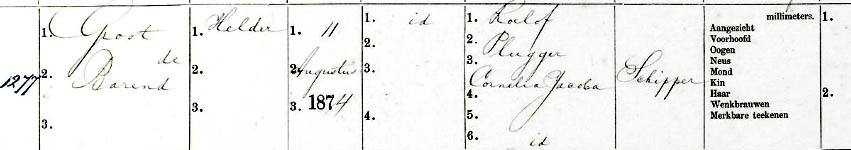 1277
1. Groot
de
2. Barend
3.
1. Helder
2.
3.
1. 11
2. Augustus
3. 1874
1. id
2.
3.
4.
1. Roelof
2. Plugger
3. Cornelia Jacoba
4.
5.
6. id
Schipper
millimeters.
Aangezicht
Voorhoofd
Oogen
Neus
Mond
Kin
Haar
Wenkbrauwen
Merkbare teekenen
1.
2.